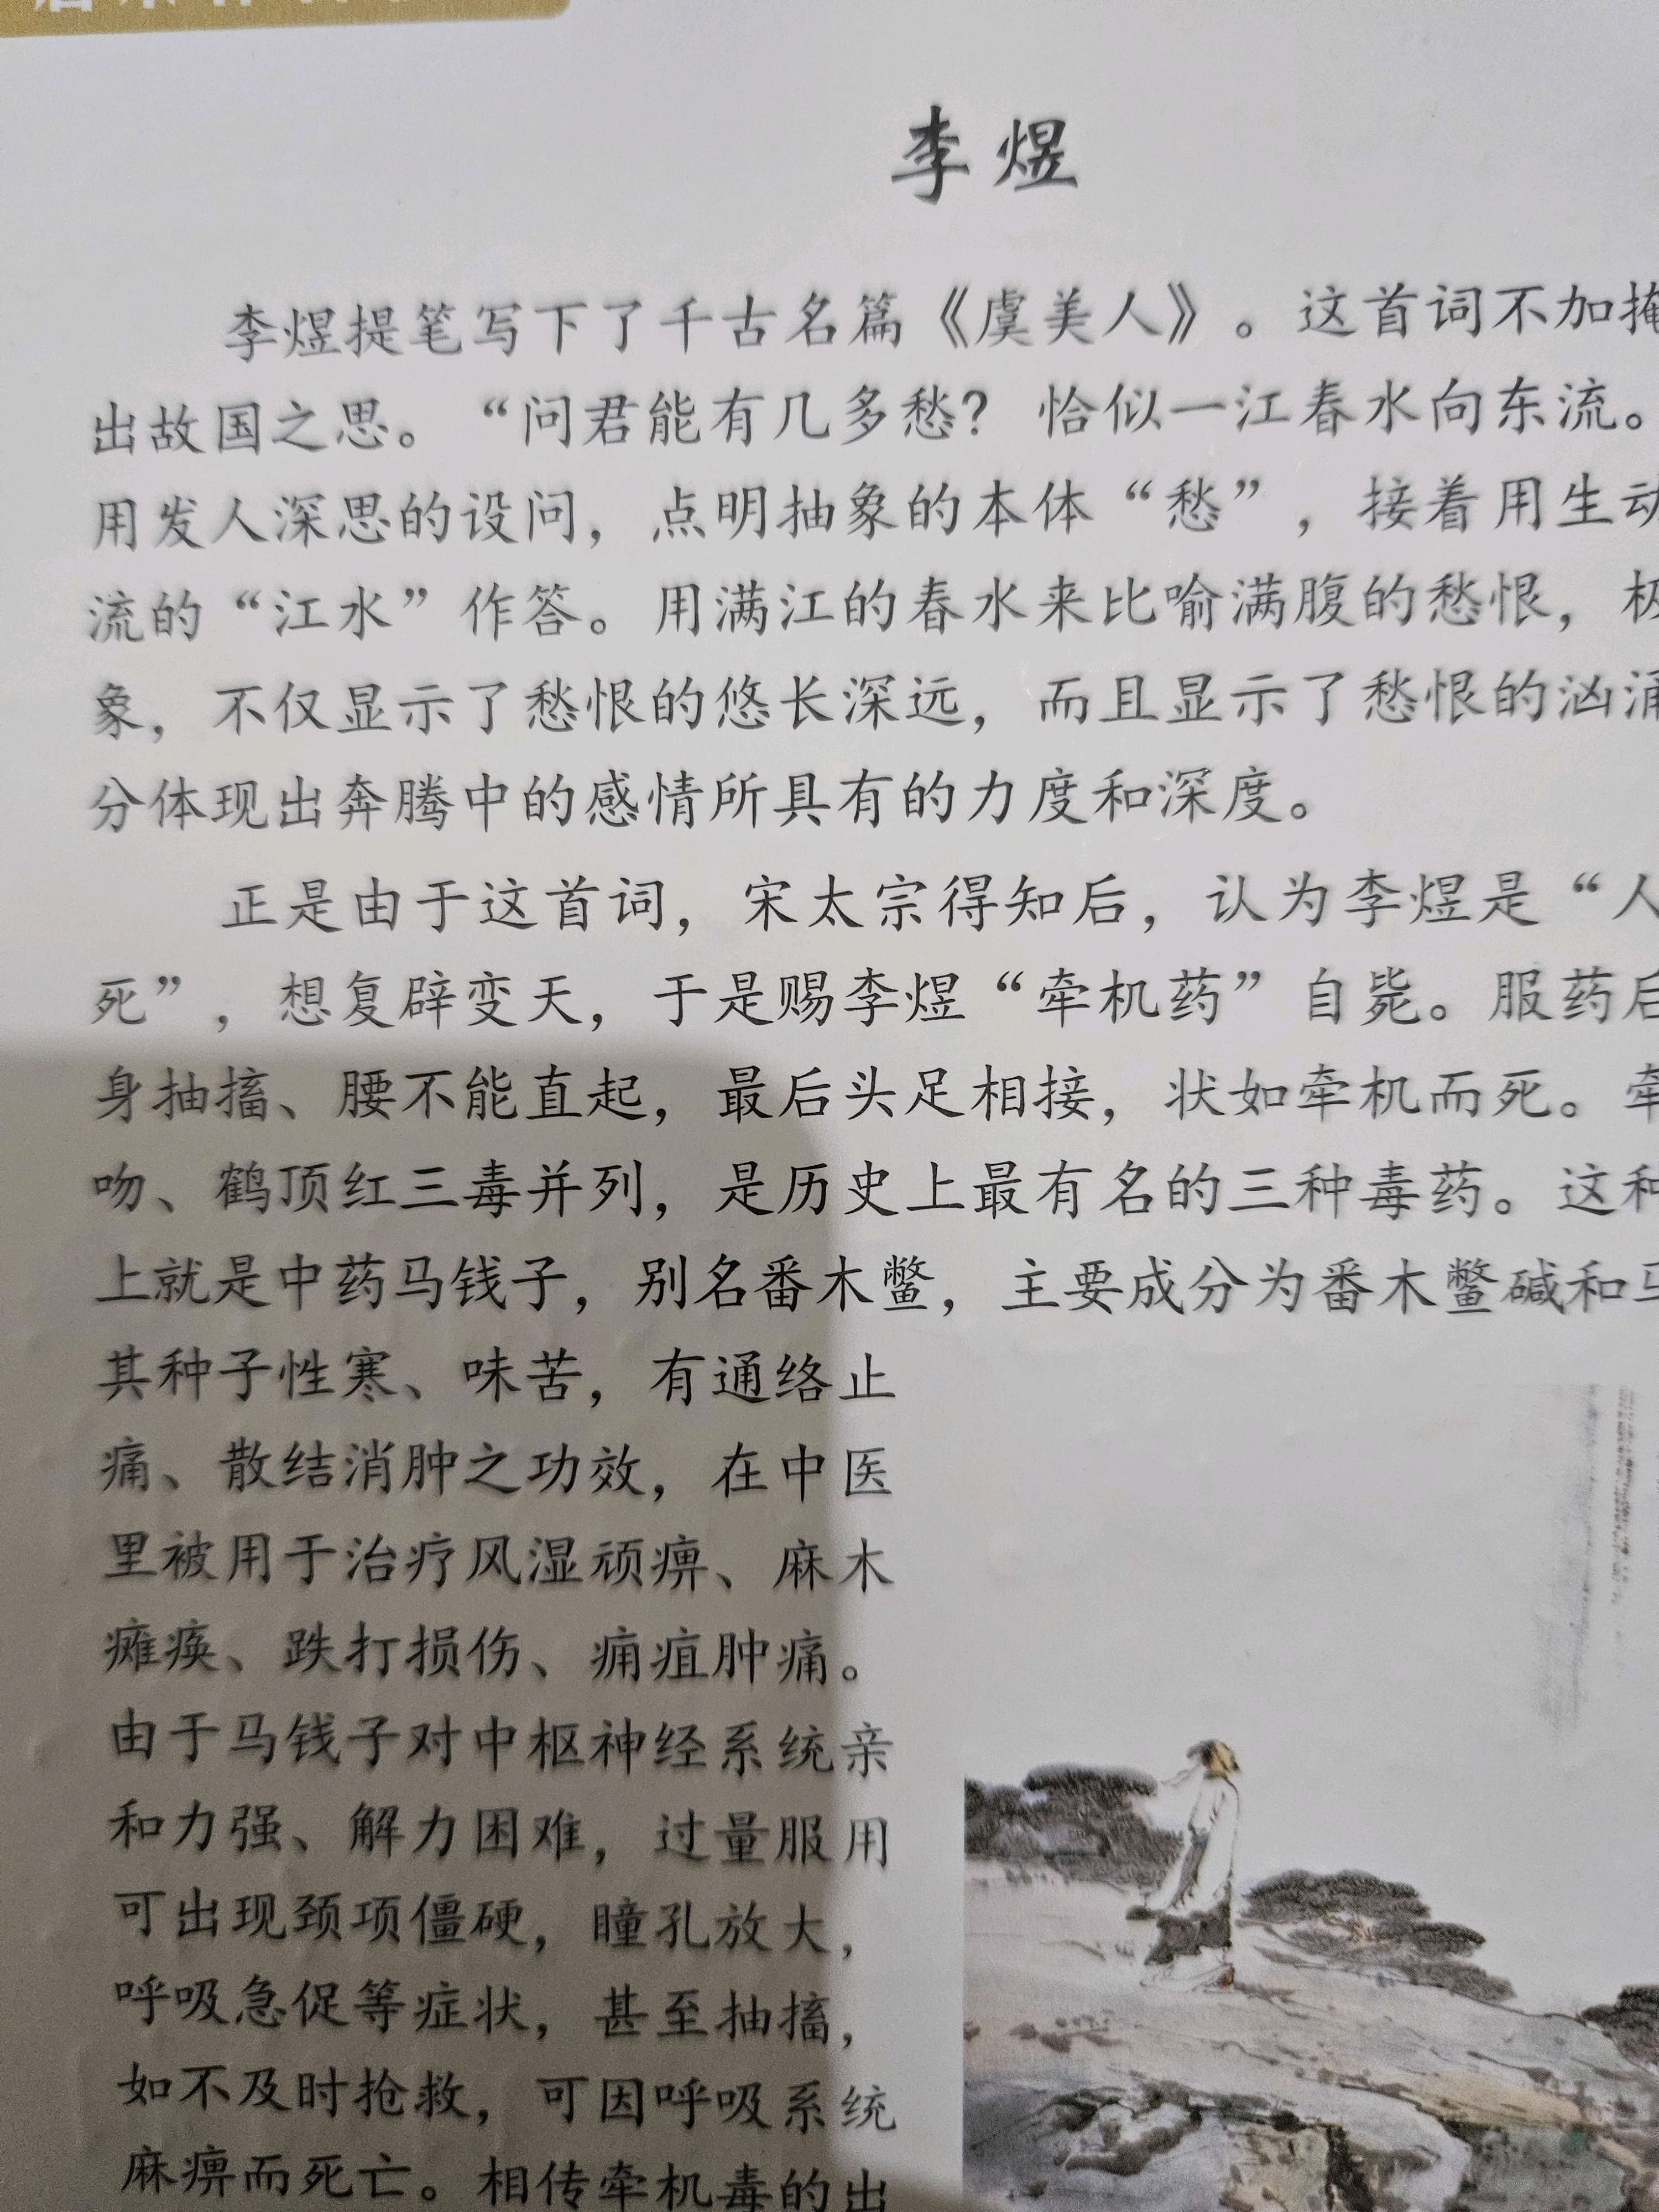 李煜
李煜提笔写下了千古名篇《虞美人》。这首词不加掩
出故国之思。“问君能有几多愁？恰似一江春水向东流。
用发人深思的设问，点明抽象的本体“愁”，接着用生动
流的“江水”作答。用满江的春水来比喻满腹的愁恨，极
象，不仅显示了愁恨的悠长深远，而且显示了愁恨的汹涌
分体现出奔腾中的感情所具有的力度和深度。
正是由于这首词，宋太宗得知后，认为李煜是“人
死”，想复辟变天，于是赐李煜“牵机药”自毙。服药后
身抽搐、腰不能直起，最后头足相接，状如牵机而死。牵
吻、鹤顶红三毒并列，是历史上最有名的三种毒药。这种
上就是中药马钱子，别名番木鳖，主要成分为番木鳖碱和马
其种子性寒、味苦，有通络止
痛、散结消肿之功效，在中医
里被用于治疗风湿顽痹、麻木
瘫痪、跌打损伤、痈疽肿痛。
由于马钱子对中枢神经系统亲
和力强、解力困难，过量服用
可出现颈项僵硬，瞳孔放大，
呼吸急促等症状，甚至抽搐，
如不及时抢救，可因呼吸系统
麻痹而死亡。相传牵机毒的出